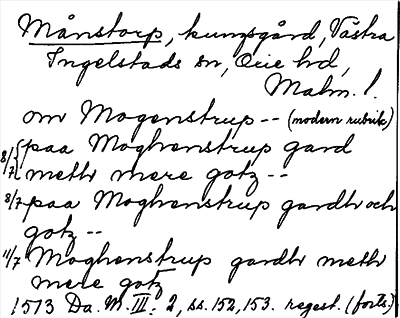 Månstorp, kungsgård, Västra
Ingelstads sn, Oxie hd,
Malm. l.
om Mogenstrup -- (modern rubrik)
8/7 { paa Moghenstrup gard
meth mere gotz --
8/7 paa Moghenstrup gardh och
gotz --
11/7 Moghenstrup gardh meth
mere gotz
1513 Da. M. III: 2, ss. 152, 153. regest. (forts.)